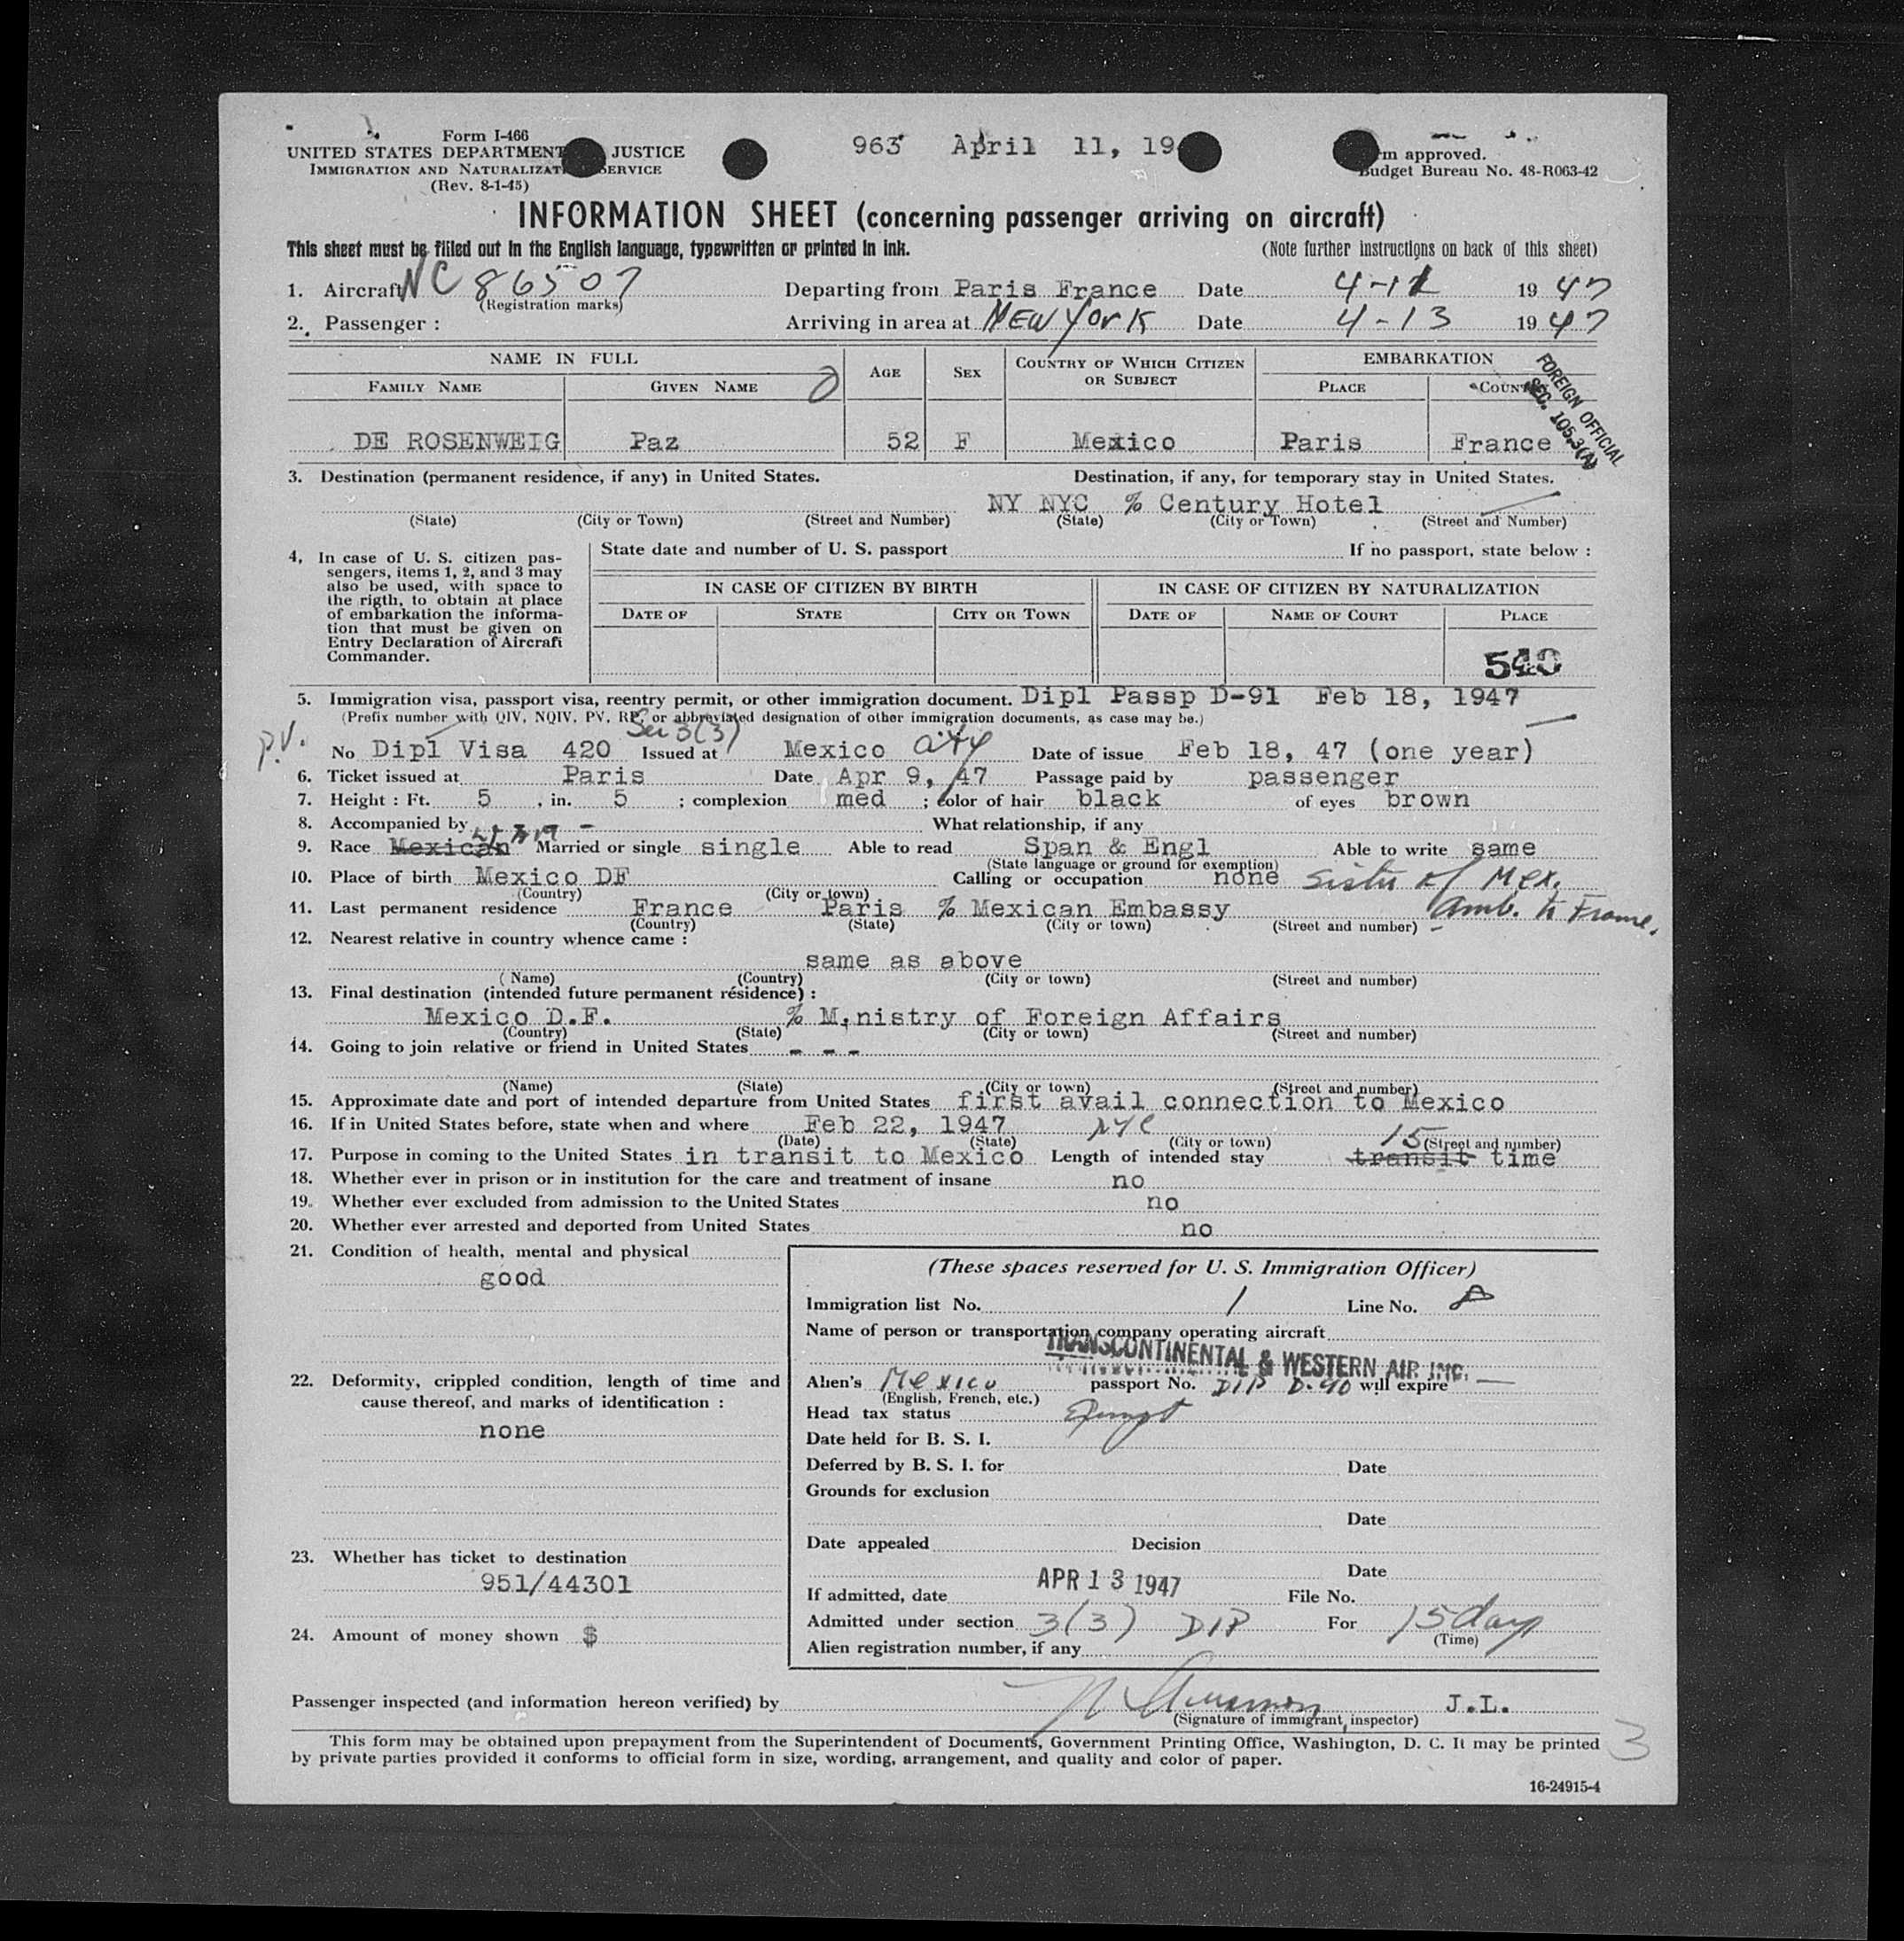 Form I-466
UNITED STATES DEPARTMENT JUSTICE
IMMIGRATION AND NATURALIZAT SERVICE
(Rev. 8-1-45)
963 April 11, 19
rm approved.
Budget Bureau No. 48-R063-42
INFORMATION SHEET (concerning passenger arriving on aircraft)
This sheet must be filled out in the English language, typewritten or printed in ink. (Note further instructions on back of this sheet)
1. Aircraft NC 86507 Departing from Paris France Date 4-11 1947
(Registration marks)
2. Passenger : Arriving in area at NEW YORK Date 4-13 1947
NAME IN FULL AGE SEX COUNTRY OF WHICH CITIZEN OR SUBJECT EMBARKATION
FAMILY NAME GIVEN NAME PLACE COUNT
FOREIGN OFFICIAL
SEC. 105.3(A)
DE ROSENWEIG Paz 52 F Mexico Paris France
3. Destination (permanent residence, if any) in United States. Destination, if any, for temporary stay in United States.
NY NYC % Century Hotel
(State) (City or Town) (Street and Number) (State) (City or Town) (Street and Number)
4. In case of U. S. citizen pas-
sengers, items 1, 2, and 3 may
also be used, with space to
the rigth, to obtain at place
of embarkation the informa-
tion that must be given on
Entry Declaration of Aircraft
Commander.
State date and number of U. S. passport If no passport, state below :
IN CASE OF CITIZEN BY BIRTH IN CASE OF CITIZEN BY NATURALIZATION
DATE OF STATE CITY OR TOWN DATE OF NAME OF COURT PLACE
5. Immigration visa, passport visa, reentry permit, or other immigration document. Dipl Passp D-91 Feb 18, 1947
(Prefix number with QIV, NQIV, PV, RP, or abbreviated designation of other immigration documents, as case may be.)
Sec 3(3)
P.V. No Dipl Visa 420 Issued at Mexico city Date of issue Feb 18, 47 (one year)
6. Ticket issued at Paris Date Apr 9, 47 Passage paid by passenger
7. Height : Ft. 5 , in. 5 ; complexion med ; color of hair black of eyes brown
8. Accompanied by - What relationship, if any
9. Race Mexican Married or single single Able to read Span & Engl Able to write same
(State language or ground for exemption)
10. Place of birth Mexico DF Calling or occupation none Sister of Mex.
(Country) (City or town)
Amb. to France.
11. Last permanent residence France Paris % Mexican Embassy
(Country) (State) (City or town) (Street and number)
12. Nearest relative in country whence came :
same as above
(Name) (Country) (City or town) (Street and number)
13. Final destination (intended future permanent résidence) :
Mexico D.F. % M.nistry of Foreign Affairs
(Country) (State) (City or town) (Street and number)
14. Going to join relative or friend in United States - - -
(Name) (State) (City or town) (Street and number)
15. Approximate date and port of intended departure from United States first avail connection to Mexico
16. If in United States before, state when and where Feb 22, 1947 NYC
(Date) (State) (City or town) (Street and number)
15
17. Purpose in coming to the United States in transit to Mexico Length of intended stay transit time
18. Whether ever in prison or in institution for the care and treatment of insane no
19. Whether ever excluded from admission to the United States no
20. Whether ever arrested and deported from United States no
21. Condition of health, mental and physical
good
22. Deformity, crippled condition, length of time and
cause thereof, and marks of identification :
none
23. Whether has ticket to destination
951/44301
24. Amount of money shown $
(These spaces reserved for U. S. Immigration Officer)
Immigration list No. 1 Line No. 8
Name of person or transportation company operating aircraft
TRANSCONTINENTAL & WESTERN AIR INC.
Alien's Mexico passport No. DIP D-90 will expire —
(English, French, etc.)
Head tax status Exempt
Date held for B. S. I.
Deferred by B. S. I. for Date
Grounds for exclusion
Date
Date appealed Decision
Date
If admitted, date APR 13 1947 File No.
Admitted under section 3(3) DIP For 15 days
(Time)
Alien registration number, if any
Passenger inspected (and information hereon verified) by J.L.
(Signature of immigrant inspector)
This form may be obtained upon prepayment from the Superintendent of Documents, Government Printing Office, Washington, D. C. It may be printed
by private parties provided it conforms to official form in size, wording, arrangement, and quality and color of paper.
3
16-24915-4